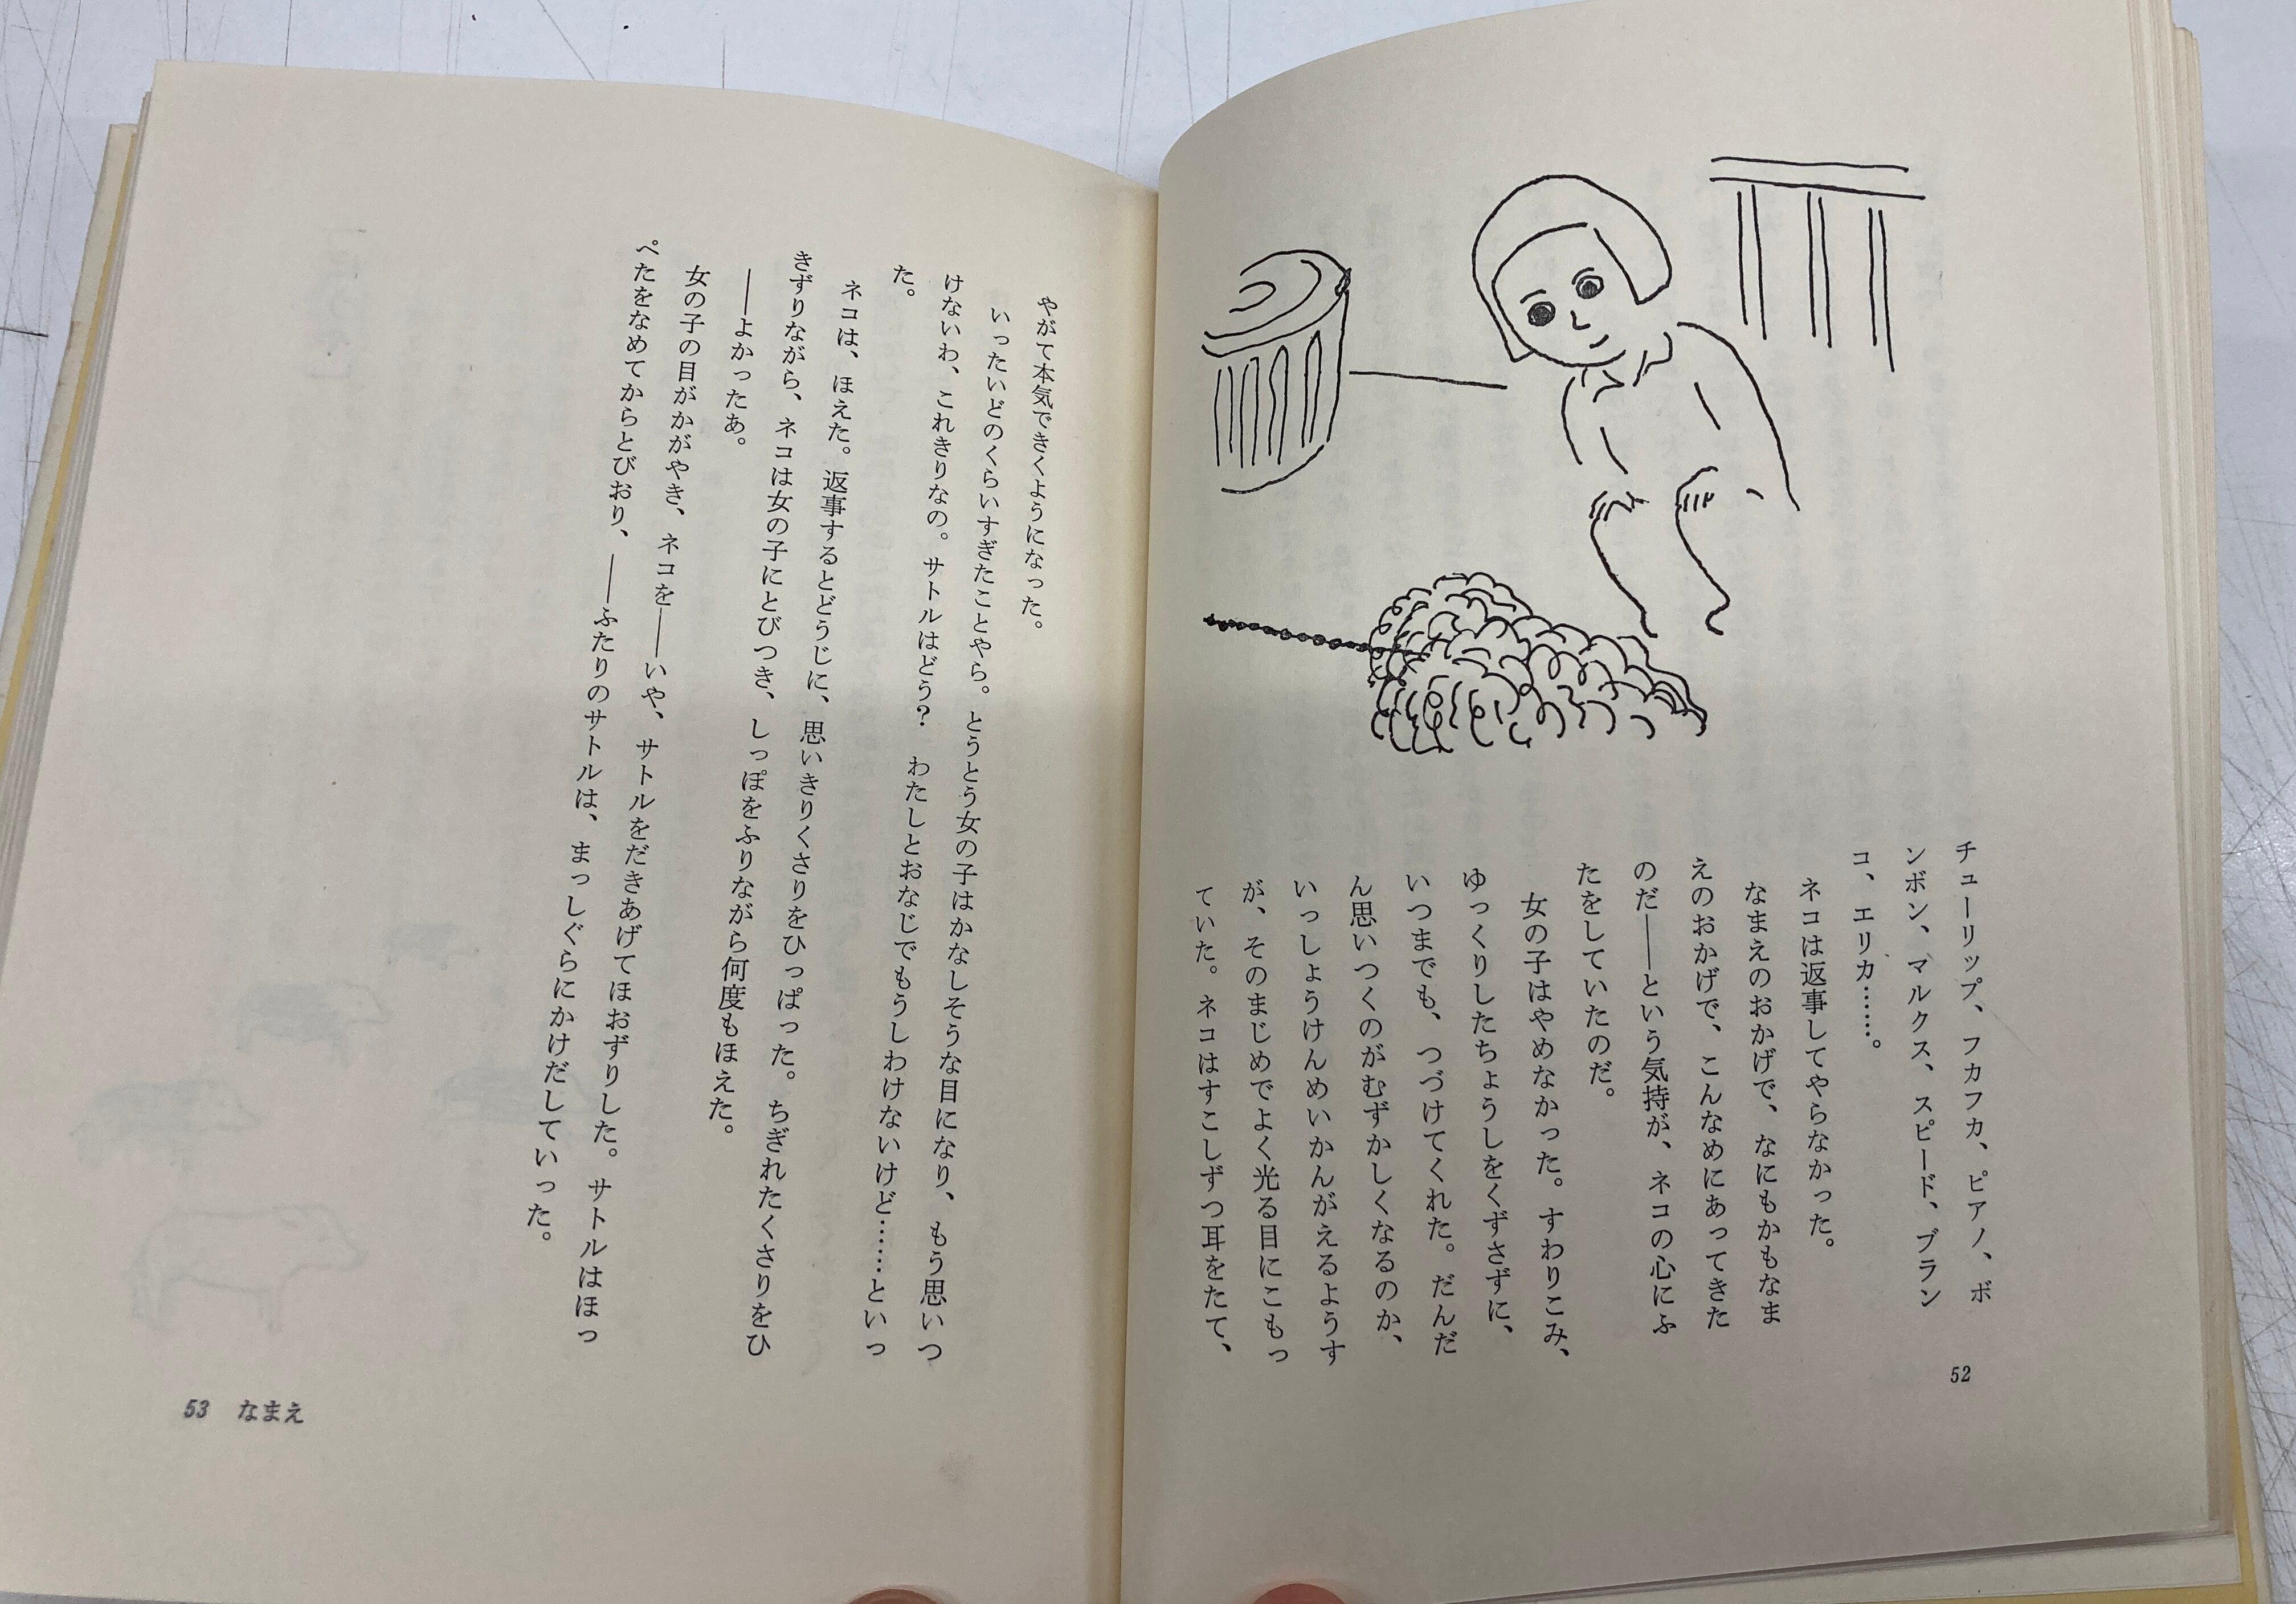 チューリップ、フカフカ、ピアノ、ボ
ンボン、マルクス、スピード、ブラン
コ、エリカ……。
ネコは返事してやらなかった。
なまえのおかげで、なにもかもなま
えのおかげで、こんなめにあってきた
のだ——という気持が、ネコの心にふ
たをしていたのだ。
女の子はやめなかった。すわりこみ、
ゆっくりしたちょうしをくずさずに、
いつまでも、つづけてくれた。だんだ
ん思いつくのがむずかしくなるのか、
いっしょうけんめいかんがえるようす
が、そのまじめでよく光る目にこもっ
ていた。ネコはすこしずつ耳をたて、
52
やがて本気できくようになった。
いったいどのくらいすぎたことやら。とうとう女の子はかなしそうな目になり、もう思いつ
けないわ、これきりなの。サトルはどう？　わたしとおなじでもうしわけないけど……といっ
た。
ネコは、ほえた。返事するとどうじに、思いきりくさりをひっぱった。ちぎれたくさりをひ
きずりながら、ネコは女の子にとびつき、しっぽをふりながら何度もほえた。
——よかったあ。
女の子の目がかがやき、ネコを——いや、サトルをだきあげてほおずりした。サトルはほっ
ぺたをなめてからとびおり、——ふたりのサトルは、まっしぐらにかけだしていった。
53 なまえ